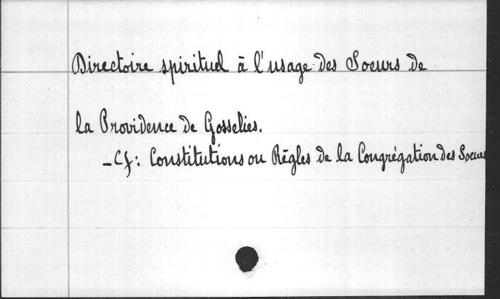 Directoire spirituel à l'usage des Soeurs de
la Providence de Gosselies.
- Cf: Constitutions ou Règles de la Congrégation des Soeurs